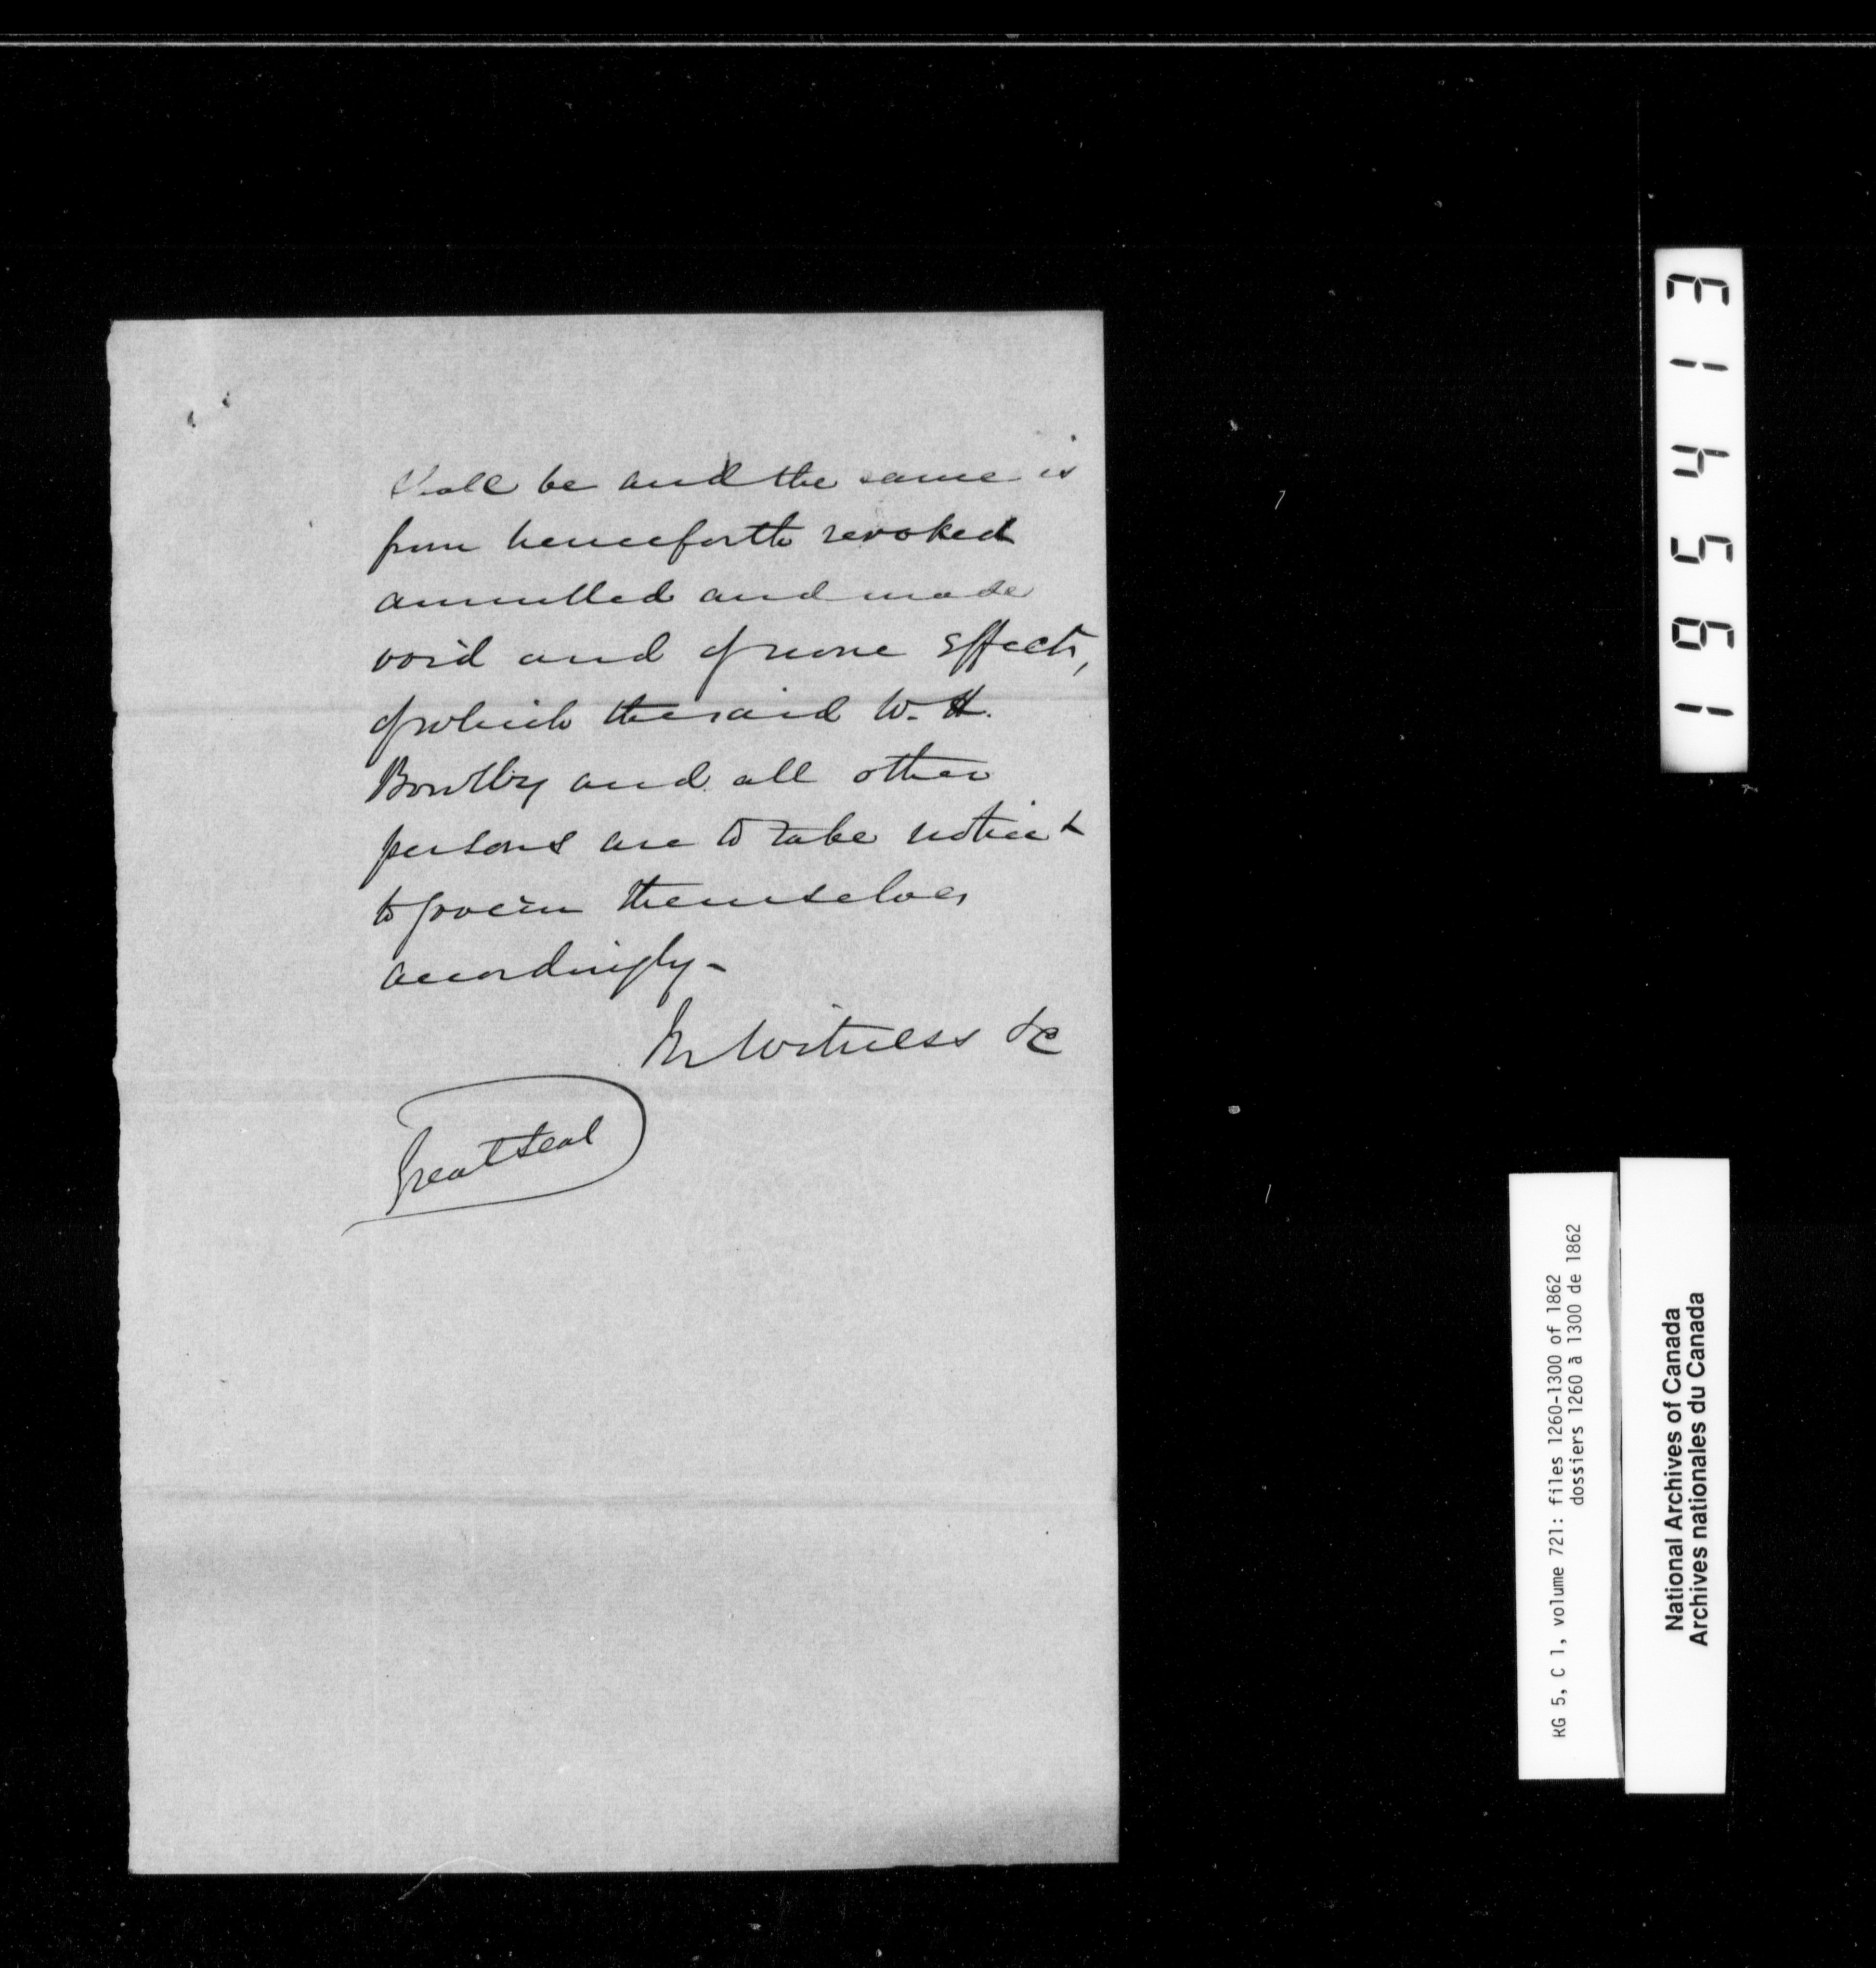 shall be and the same is
from henceforth revoked
annulled and made
void and of none effect,
of which the said W. H.
Bowlby and all other
persons are to take notice &
to govern themselves
accordingly -
In Witness &c
Great Seal
195413
RG 5, C 1, volume 721: files 1260-1300 of 1862
dossiers 1260 à 1300 de 1862
National Archives of Canada
Archives nationales du Canada